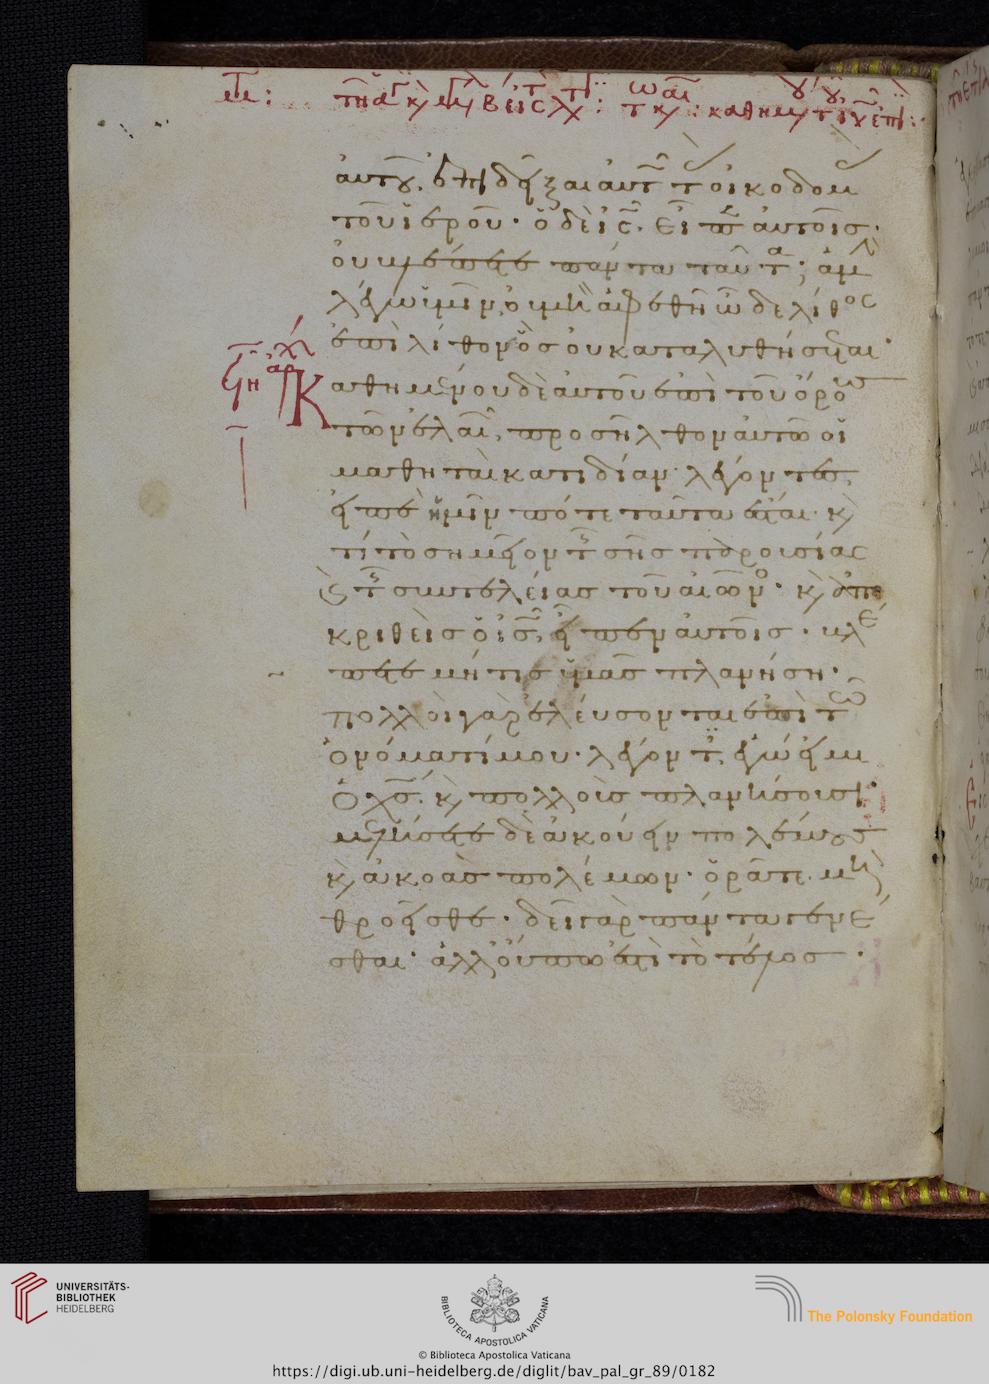 αὐτοῦ. ἐπιδεῖξαι αὐτῶ τ οἰκοδομ
τοῦ ἱεροῦ· ὁ δὲ ἰς. εἶπεν αὐτοῖς·
οὐ βλέπετε πάντα ταῦτα; ἀμὴν
λέγω ὑμῖν, οὐ μὴ ἀφεθῆ ὧδε λίθος
ἐπὶ λίθον ὃς οὐ καταλυθήσεται·
Καθημένου δὲ αὐτοῦ ἐπὶ τοῦ ὄρους
τῶν ἐλαιῶν, προσῆλθον αὐτῶ οἱ
μαθηταὶ κατιδίαν· λέγοντες,
εἰπὲ ἡμῖν πότε ταῦτα ἔσται· κ
τί τὸ σημεῖον τῆς σῆς παρουσίας
κ τῆς συντελείας τοῦ αἰῶνος· κ ἀπο
κριθεὶς ὁ ις, εἶπεν αὐτοῖς· βλέ
πετε μή τις ὑμᾶς πλανήση·
πολλοὶ γὰρ ἐλεύσονται ἐπὶ τῶ
ὀνόματί μου· λέγοντες, ἐγώ εἰμι
ὁ χς. κ πολλοὺς πλανήσουσι·
μελλήσετε δὲ ἀκούειν πολέμους
κ ἀκοὰς πολέμων· ὁρᾶτε μὴ
θροεῖσθε· δεῖ γὰρ πάντα γενέ
σθαι· ἀλλ οὔπω ἐστὶ τὸ τέλος·
UNIVERSITÄTS-
BIBLIOTHEK
HEIDELBERG
BIBLIOTECA APOSTOLICA VATICANA
The Polonsky Foundation
© Biblioteca Apostolica Vaticana
https://digi.ub.uni-heidelberg.de/diglit/bav_pal_gr_89/0182